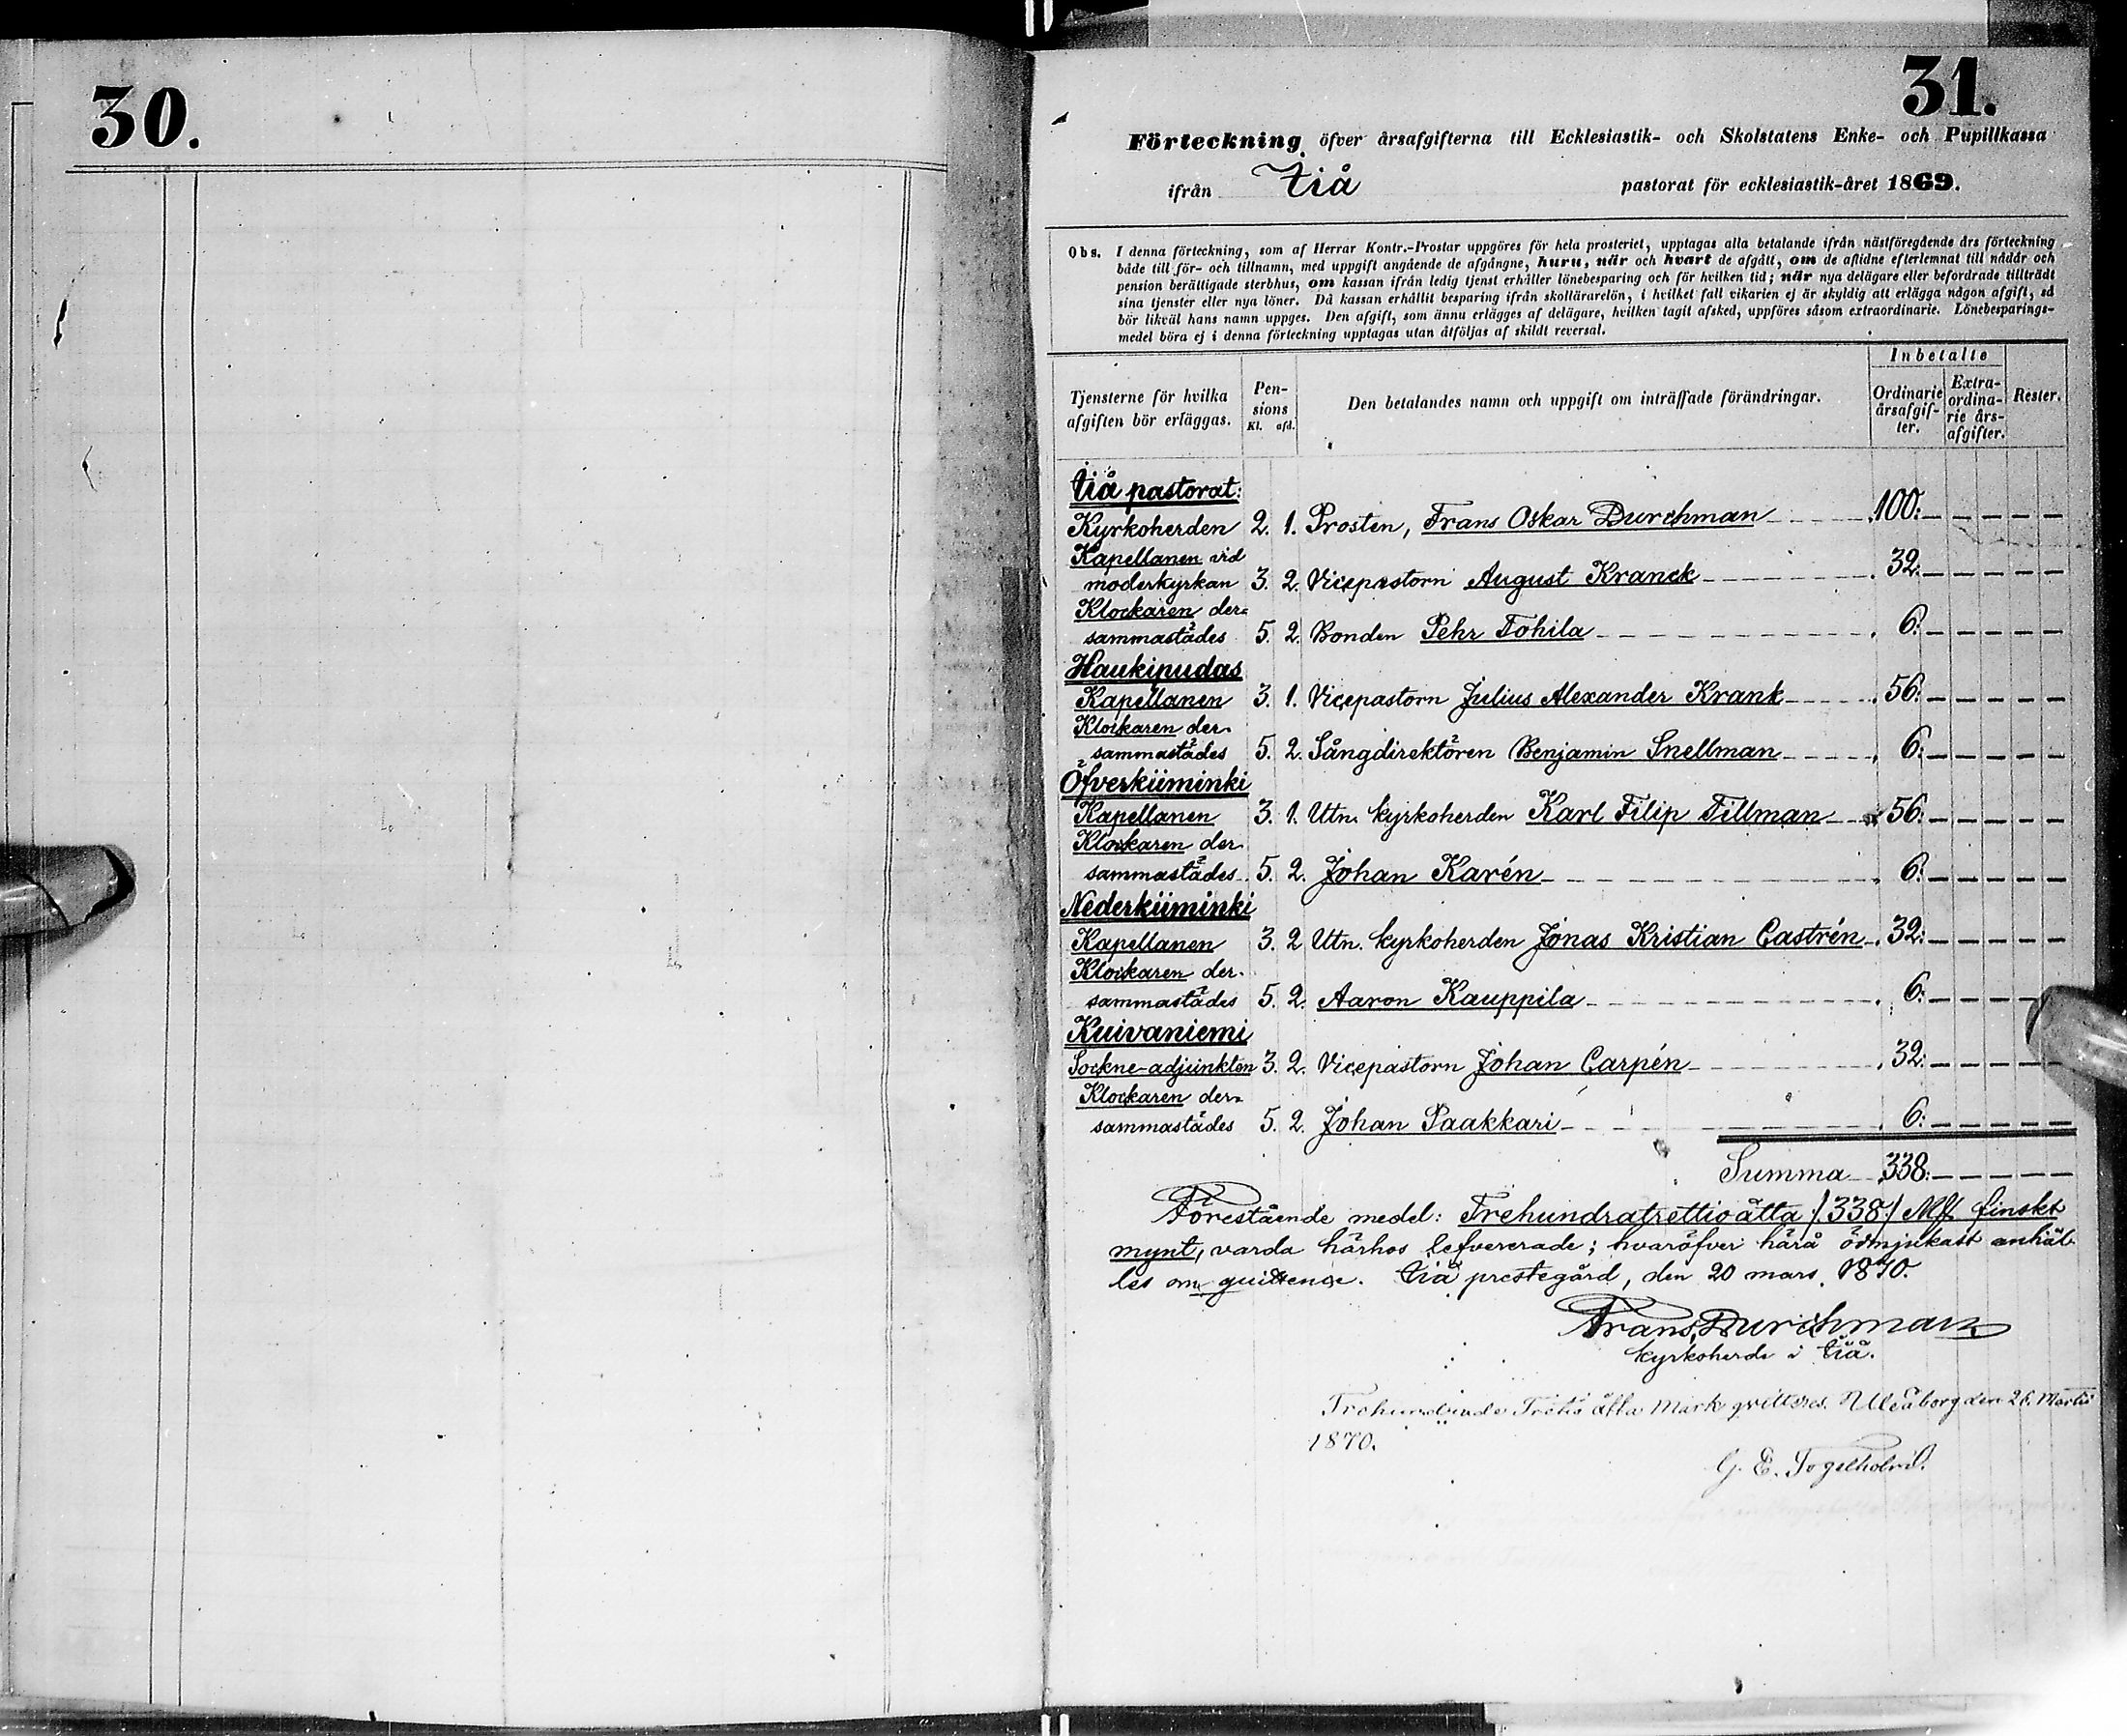 30.
31.
Förteckning öfver årsafgifterna till Ecklesiastik- och Skolstatens Enke- och Pupillkassa
ifrån Iiå pastorat för ecklesiastik-året 1869.
Obs. I denna förteckning, som af Herrar Kontr.-Prostar uppgöres för hela prosteriet, upptagas alla betalande ifrån nästföregående års förteckning
både till för- och tillnamn, med uppgift angående de afgångne, huru, när och hvart de afgått, om de aflidne efterlemnat till nådår och
pension berättigade sterbhus, om kassan ifrån ledig tjenst erhåller lönebesparing och för hvilken tid; när nya delägare eller befordrade tillträdt
sina tjenster eller nya löner. Då kassan erhållit besparing ifrån skollärarelön, i hvilket fall vikarien ej är skyldig att erlägga någon afgift, så
bör likväl hans namn uppges. Den afgift, som ännu erlägges af delägare, hvilken tagit afsked, uppföres såsom extraordinarie. Lönebesparings-
medel böra ej i denna förteckning upptagas utan åtföljas af skildt reversal.
Tjensterne för hvilka
afgiften bör erläggas.
Pen-
sions
Kl. afd.
Den betalandes namn och uppgift om inträffade förändringar.
Inbetalte
Ordinarie
årsafgif-
ter.
Extra-
ordina-
rie års-
afgifter.
Rester.
Iiå pastorat:
Kyrkoherden 2. 1. Prosten, Frans Oskar Durchman 100:
Kapellanen vid
moderkyrkan 3. 2. Vicepastorn August Kranck 32:
Klockaren der-
sammastädes 5. 2. Bonden Pehr Tohila 6:
Haukipudas
Kapellanen 3. 1. Vicepastorn Julius Alexander Krank 56:
Klockaren der-
sammastädes 5. 2. Sångdirektören Benjamin Snellman 6:
Öfverkiiminki
Kapellanen 3. 1. Utn. kyrkoherden Karl Filip Tillman 56:
Klockaren der-
sammastädes 5. 2. Johan Karén 6:
Nederkiiminki
Kapellanen 3. 2 Utn. kyrkoherden Jonas Kristian Castrén 32:
Klockaren der-
sammastädes 5. 2. Aaron Kauppila 6:
Kuivaniemi
Sockne-adjunkten 3. 2. Vicepastorn Johan Carpén 32:
Klockaren der-
sammastädes 5. 2. Johan Paakkari 6:
Summa 338:
Förestående medel: Trehundratrettioåtta /:338:/ Mk finskt
mynt, varda härhos lefvererade; hvaröfver härå ödmjukast anhål-
les om quittence. Iiå prestegård, den 20 mars 1870.
Frans Durchman
kyrkoherde i Iiå.
Trehundrade Tretio åtta Mark qvitteres. Uleåborg den 26 Martii
1870.